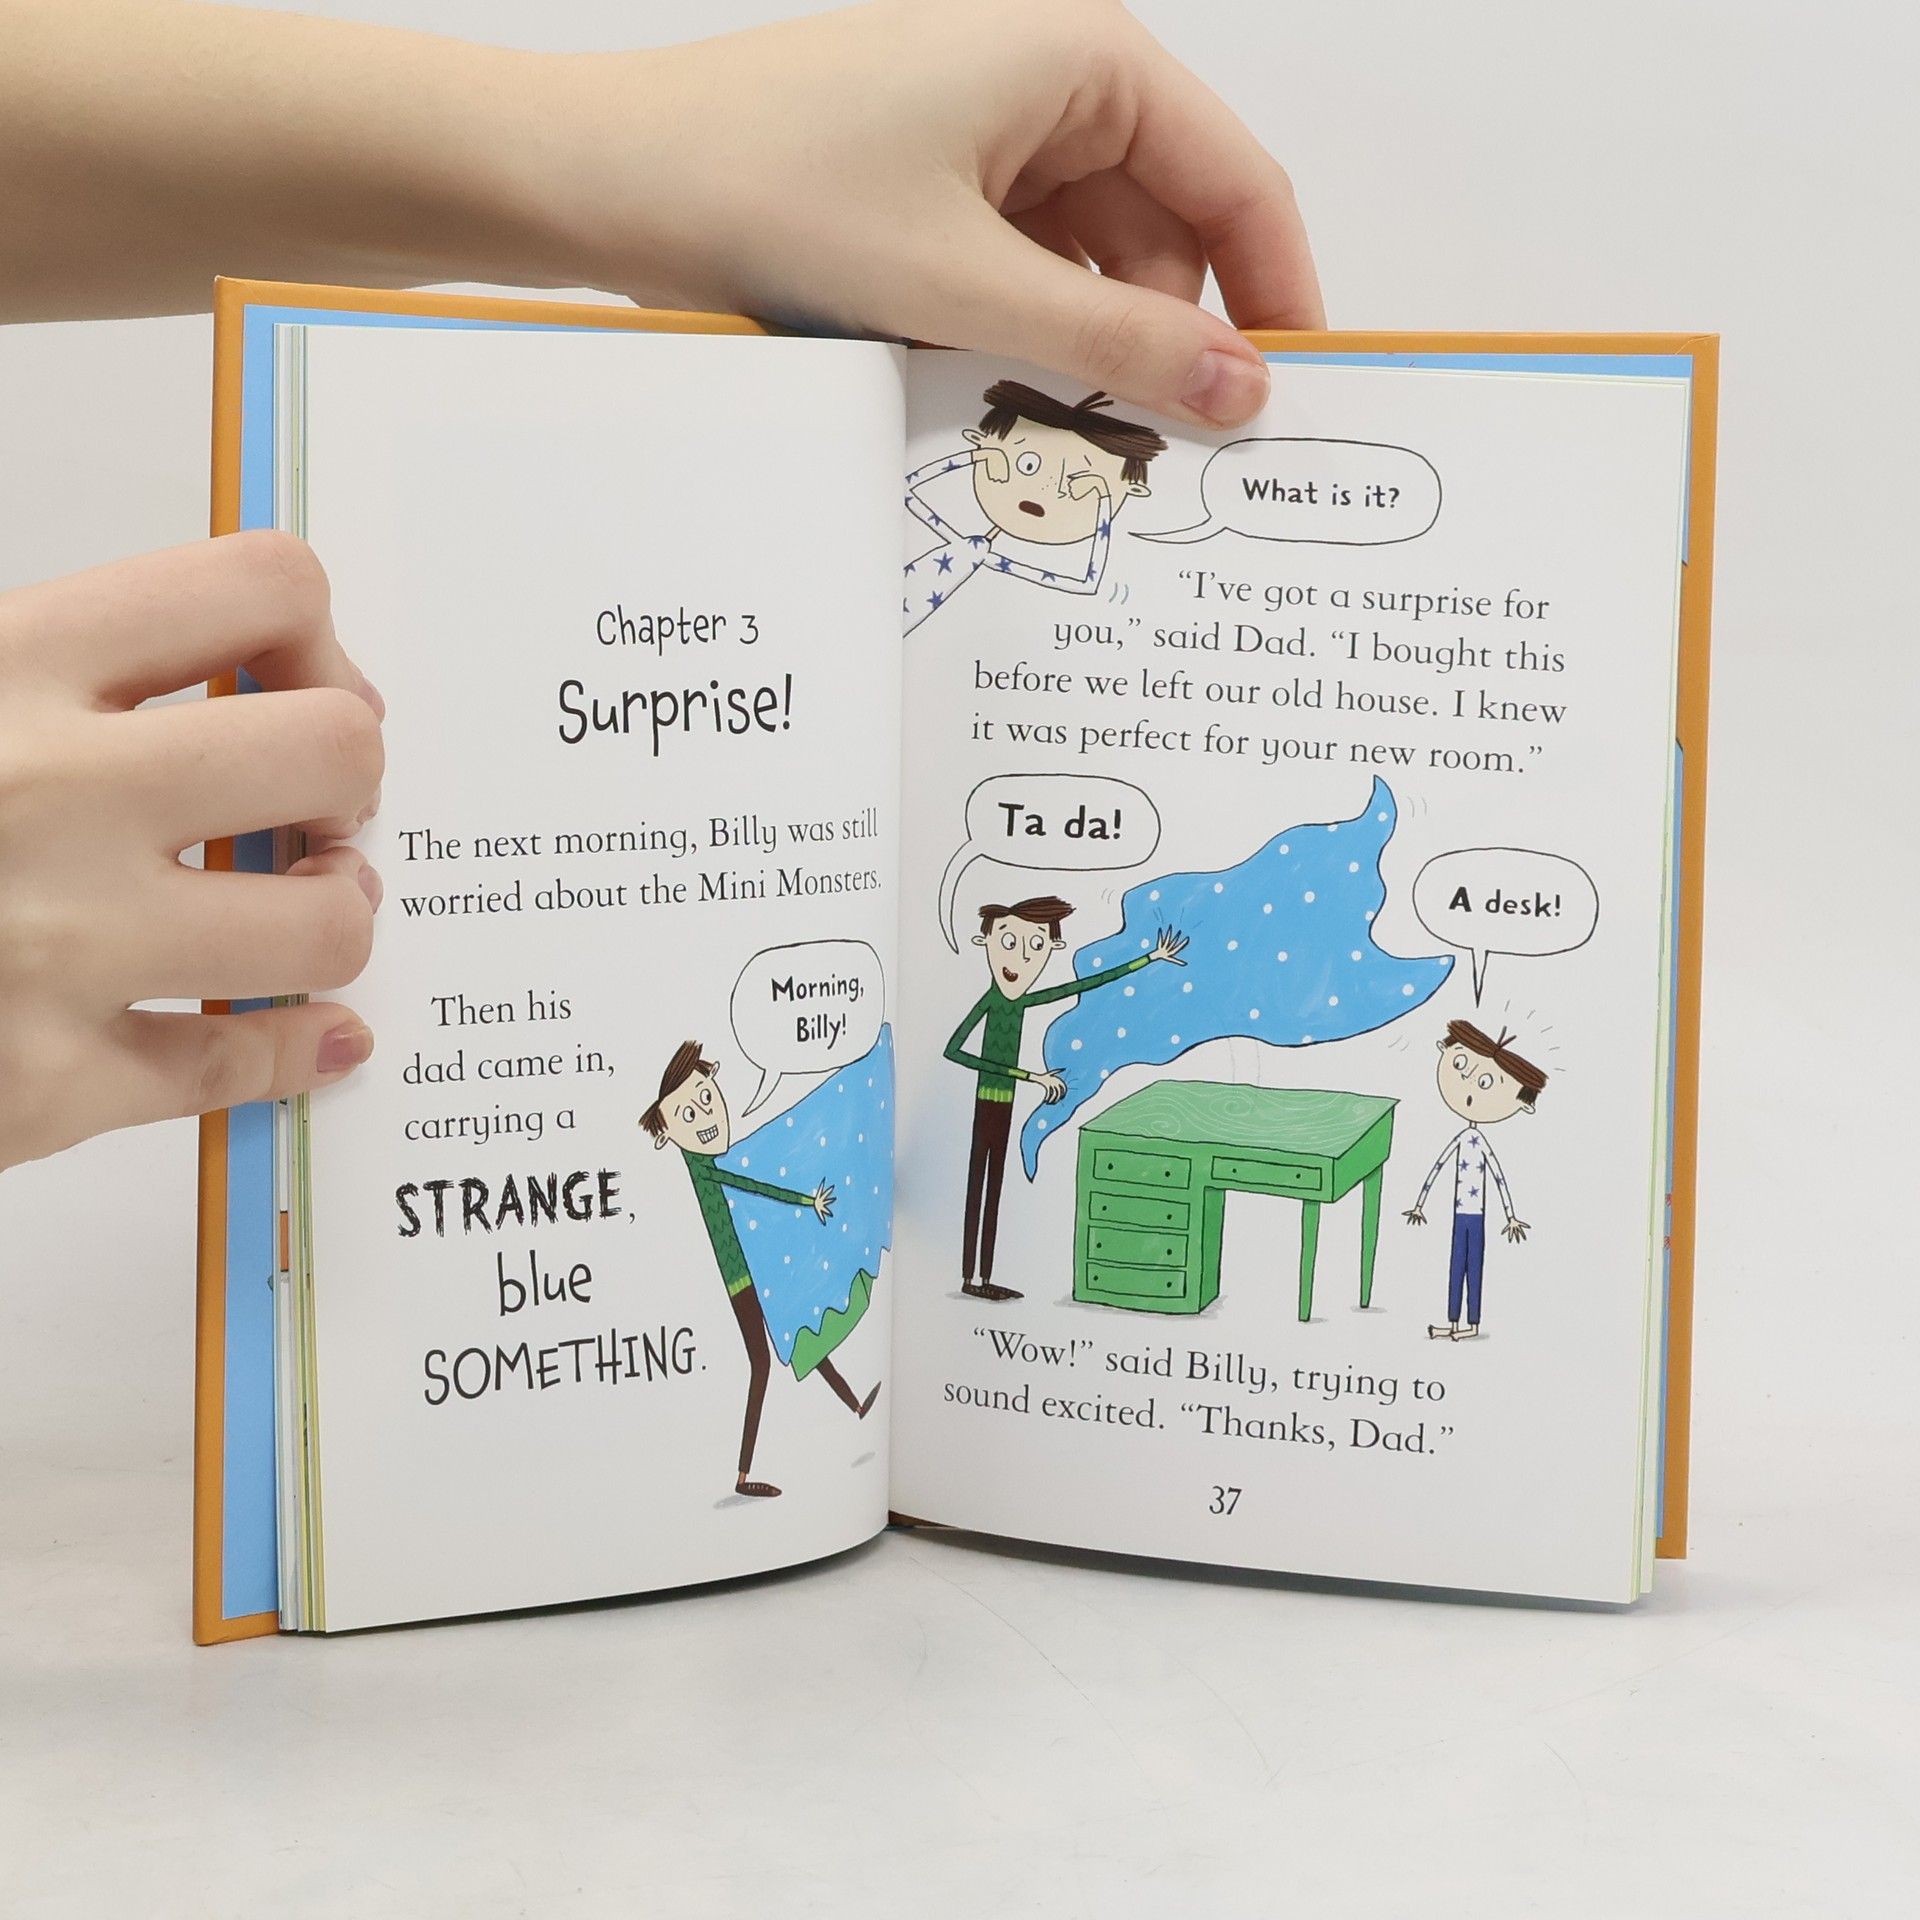 Chapter 3
Surprise!
The next morning, Billy was still
worried about the Mini Monsters.
Morning,
Billy!
Then his
dad came in,
carrying a
STRANGE,
blue
SOMETHING.
What is it?
“I’ve got a surprise for
you,” said Dad. “I bought this
before we left our old house. I knew
it was perfect for your new room.”
Ta da!
A desk!
“Wow!” said Billy, trying to
sound excited. “Thanks, Dad.”
37